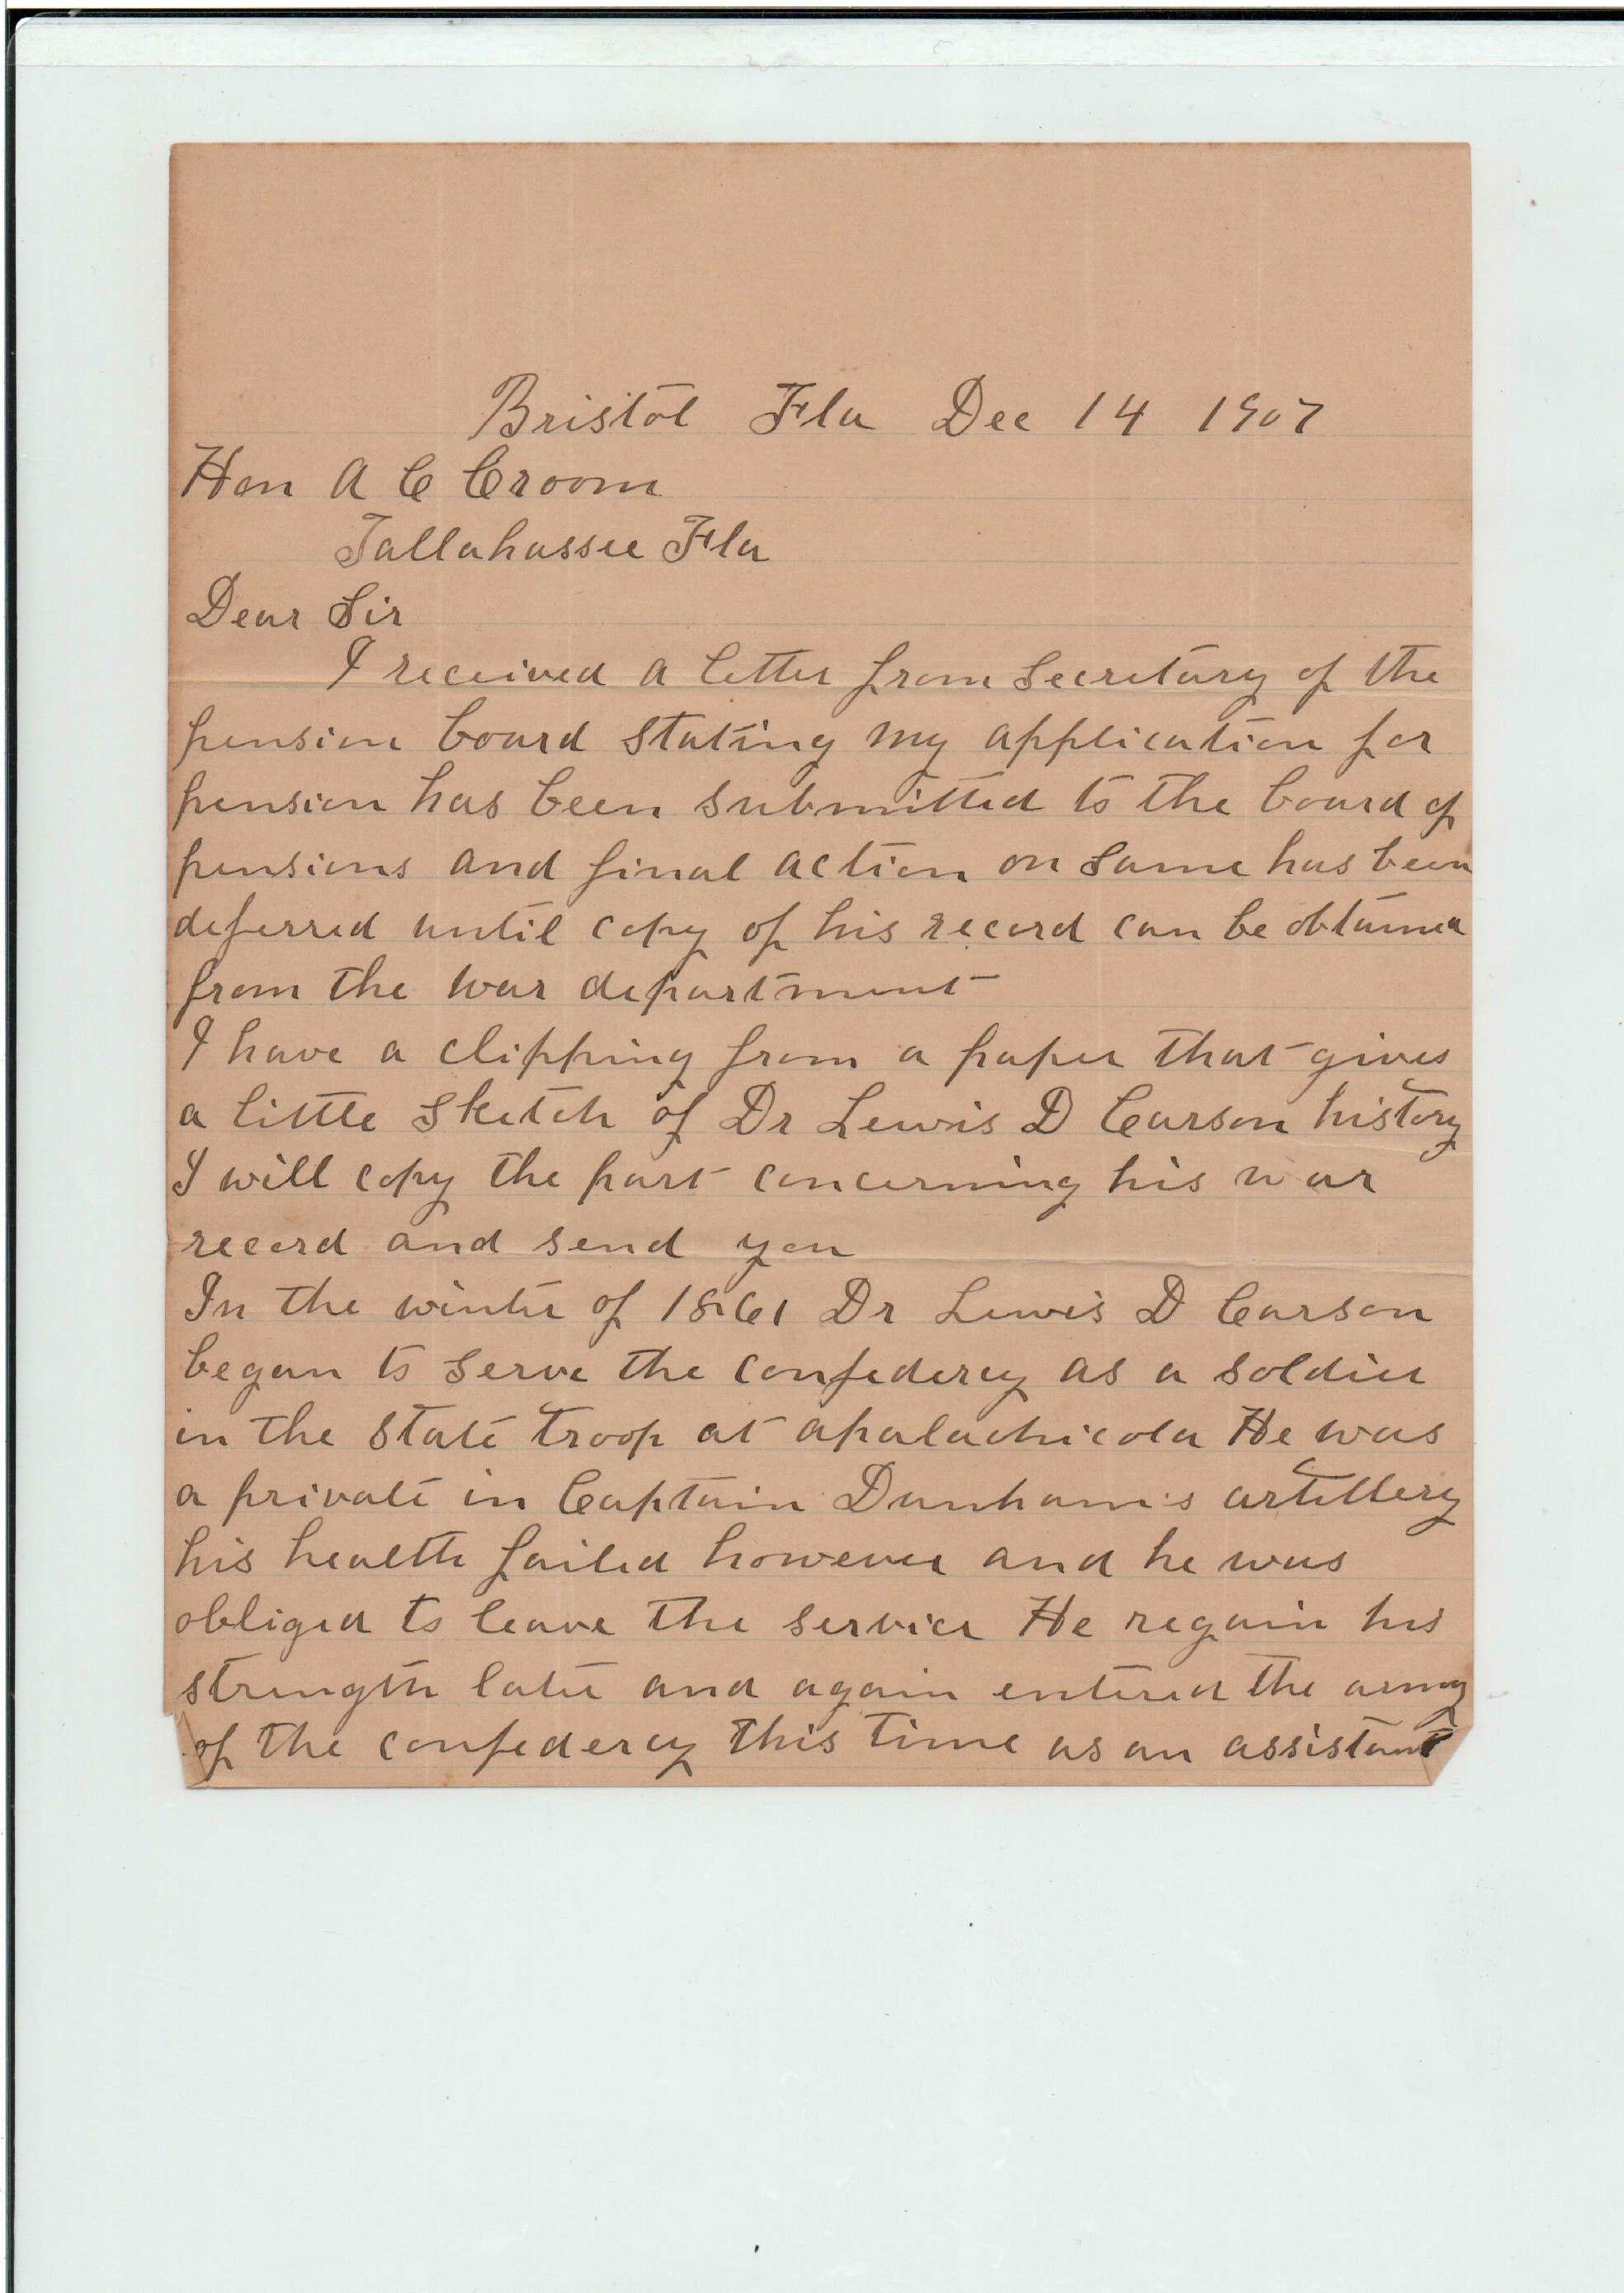 Bristol Fla Dec 14 1907
Hon A C Croom
Tallahassee Fla
Dear Sir
I received a letter from Secretary of the
pension board stating my application for
pension has been submitted to the board of
pensions and final action on same has been
deferred until copy of his record can be obtained
from the war department
I have a clipping from a paper that gives
a little sketch of Dr Lewis D Carson history
I will copy the part concerning his war
record and send you
In the winter of 1861 Dr Lewis D Carson
began to serve the confedercy as a soldier
in the state troop at apalachicola He was
a private in Captain Dunham's artillery
his health failed however and he was
obliged to leave the service He regain his
strength later and again entered the army
of the confedercy this time as an assistant